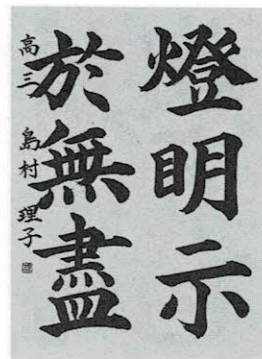 燈明示
於無盡
高三 島村 理子